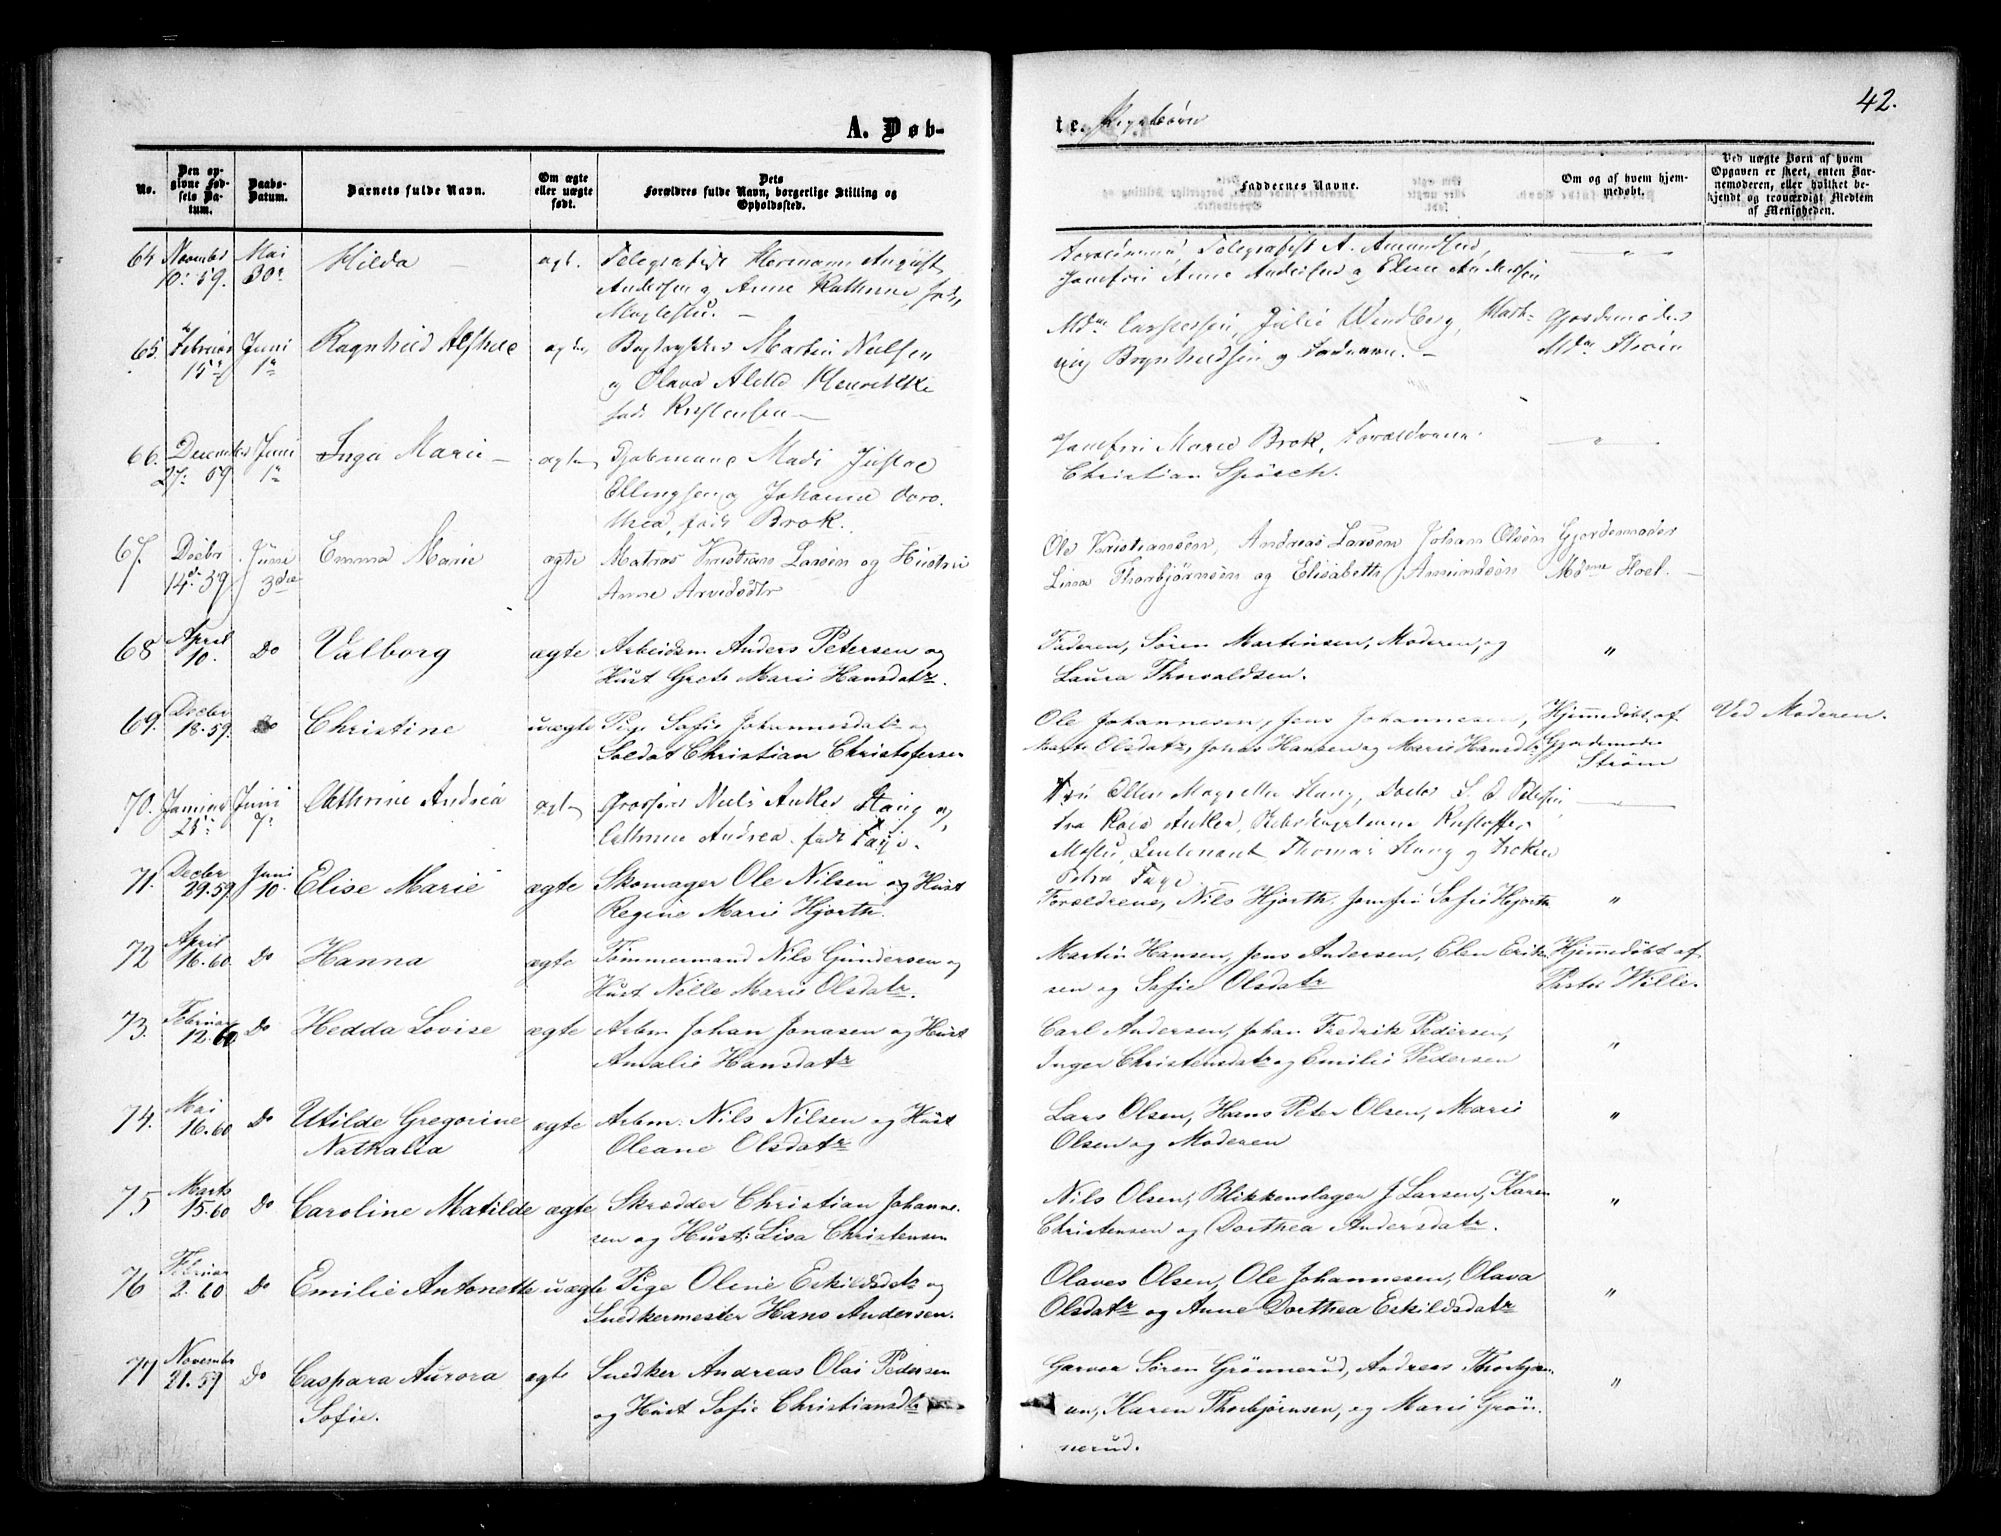 42.
A. Døb-
te. Pigebørn
No.
Den op-
givne Fød-
sels Da-
tum.
Daabs-
Datum.
Barnets fulde Navn.
Om ægte
eller uægte
født.
Dets
Forældres fulde Navn, borgerlige Stilling og
Opholdssted.
Faddernes Navne.
Om og af hvem hjem-
medøbt.
Ved uægte Børn af hvem
Opgaven er skeet, enten Bar-
nemoderen, eller hvilket be-
kjendt og troværdigt Medlem
af Menigheden.
64 November 10. 59. Mai 30. Hilda — ægt. Telegrafist Hermann August
Andersen og Anne Kathrine
Forældrene, Telegrafist A. Amundsen,
Jomfru Anne Andersen og Eline Andersen
65. Februar 15 Juni 1 Ragnhild ægte Bogtrykker Martin Nielsen
og Olava Henrikke
født
Mdm Caspersen, Julie Windberg,
Brynhildsen og Faderen. —
Gjordemoder
Mdm Strøm
66. December 27. 59 Juni 1 Inga Marie — ægte Mads
Ellingsen og Johanne Doro-
thea, født Brok.
Jomfru Marie Brok, Forældrene
Christian
67. Decbr 14d. 59 June 3die Emma Marie ægte Matros Kristian Larsen og Hustru
Anne Arvedsdtr
Ole Kristiansen, Andreas Larsen Johan Olsen
Lina Thorbjørnsen og Elisabeth Amundsen
Gjordemoder
Mdme Hoel. —
68 April 10. Do Valborg ægte Arbeidsm Anders Petersen og
Hust Grete Marie Hansdatr.
Faderen, Søren Martinsen, Moderen, og
Laura Thorvaldsen.
"
69. Decbr 18. 59. Do Christine uægte Pige Sofie Johannesdatr og
Soldat Christian Christofersen
Ole Johannesen, Jens Johannesen,
Marte Olsdatr, Johas Hansen og Marie Hansdtr
Hjemmedøbt af
Gjordemoder
Strøm
Ved Moderen.
70. Januar 25 Juni 7 Cathrine Andrea ægte Grosserer Niels Anker Stang og
Cathrine Andrea født Faye.
Fru Ellen Magrethe Stang, Doctor
Anker,
Lieutenant Thomas Stang og Frøken
Petra Faye
71. Decbr 29. 59. Juni 10. Elise Marie ægte Skomager Ole Nilsen og Hust
Regine Marie Hjorth.
Forældrene, Nils Hjorth, Jomfru Sofie Hjorth
"
72 April 16. 60. Do Hanna ægte Tømmermand Nils Gundersen og
Hust Nelle Marie Olsdatr.
Martin Hansen, Jens Andersen, Elen Erik-
sen og Sofie Olsdatr
Hjemmedøbt af
Pastor Wille.
73. Februar 12. 60. Do Hedda Lovise ægte Arbm Johan Jonasen og Hust
Amalie Hansdatr
Carl Andersen, Johan Fredrik Pedersen,
Inger Christensdatr og Emilie Pedersen
"
74. Mai 16. 60 Do Utilde Gregorine
Nathalia
ægte Arbm. Nils Nilsen og Hust
Oleane Olsdatr
Lars Olsen, Hans Peter Olsen, Marie
Olsen og Moderen
"
75 Marts 15. 60 Do Caroline Matilde ægte Skrædder Christian Johanne-
sen og Hust: Lisa Christensen
Nils Olsen, Blikkenslager J. Larsen, Karen
Christensen og Dorthea Andersdatr.
"
76 Februar 2. 60 Do Emilie Antonette uægte Pige Oline Eskildsdatr og
Snedkermester Hans Andersen.
Olaves Olsen, Ole Johannesen, Olava
Olsdatr og Anne Dorthea Eskildsdatr
"
77 Novembr 21. 59 Do Caspara Aurora
Sofie.
ægte Snedker Andreas Olai Pedersen
og Hust Sofie Christiansdtr
Garver Søren Grønnerud, Andreas Thorbjørn-
sen, Karen Thorbjørnsen, og Marie Grøn-
nerud.
"